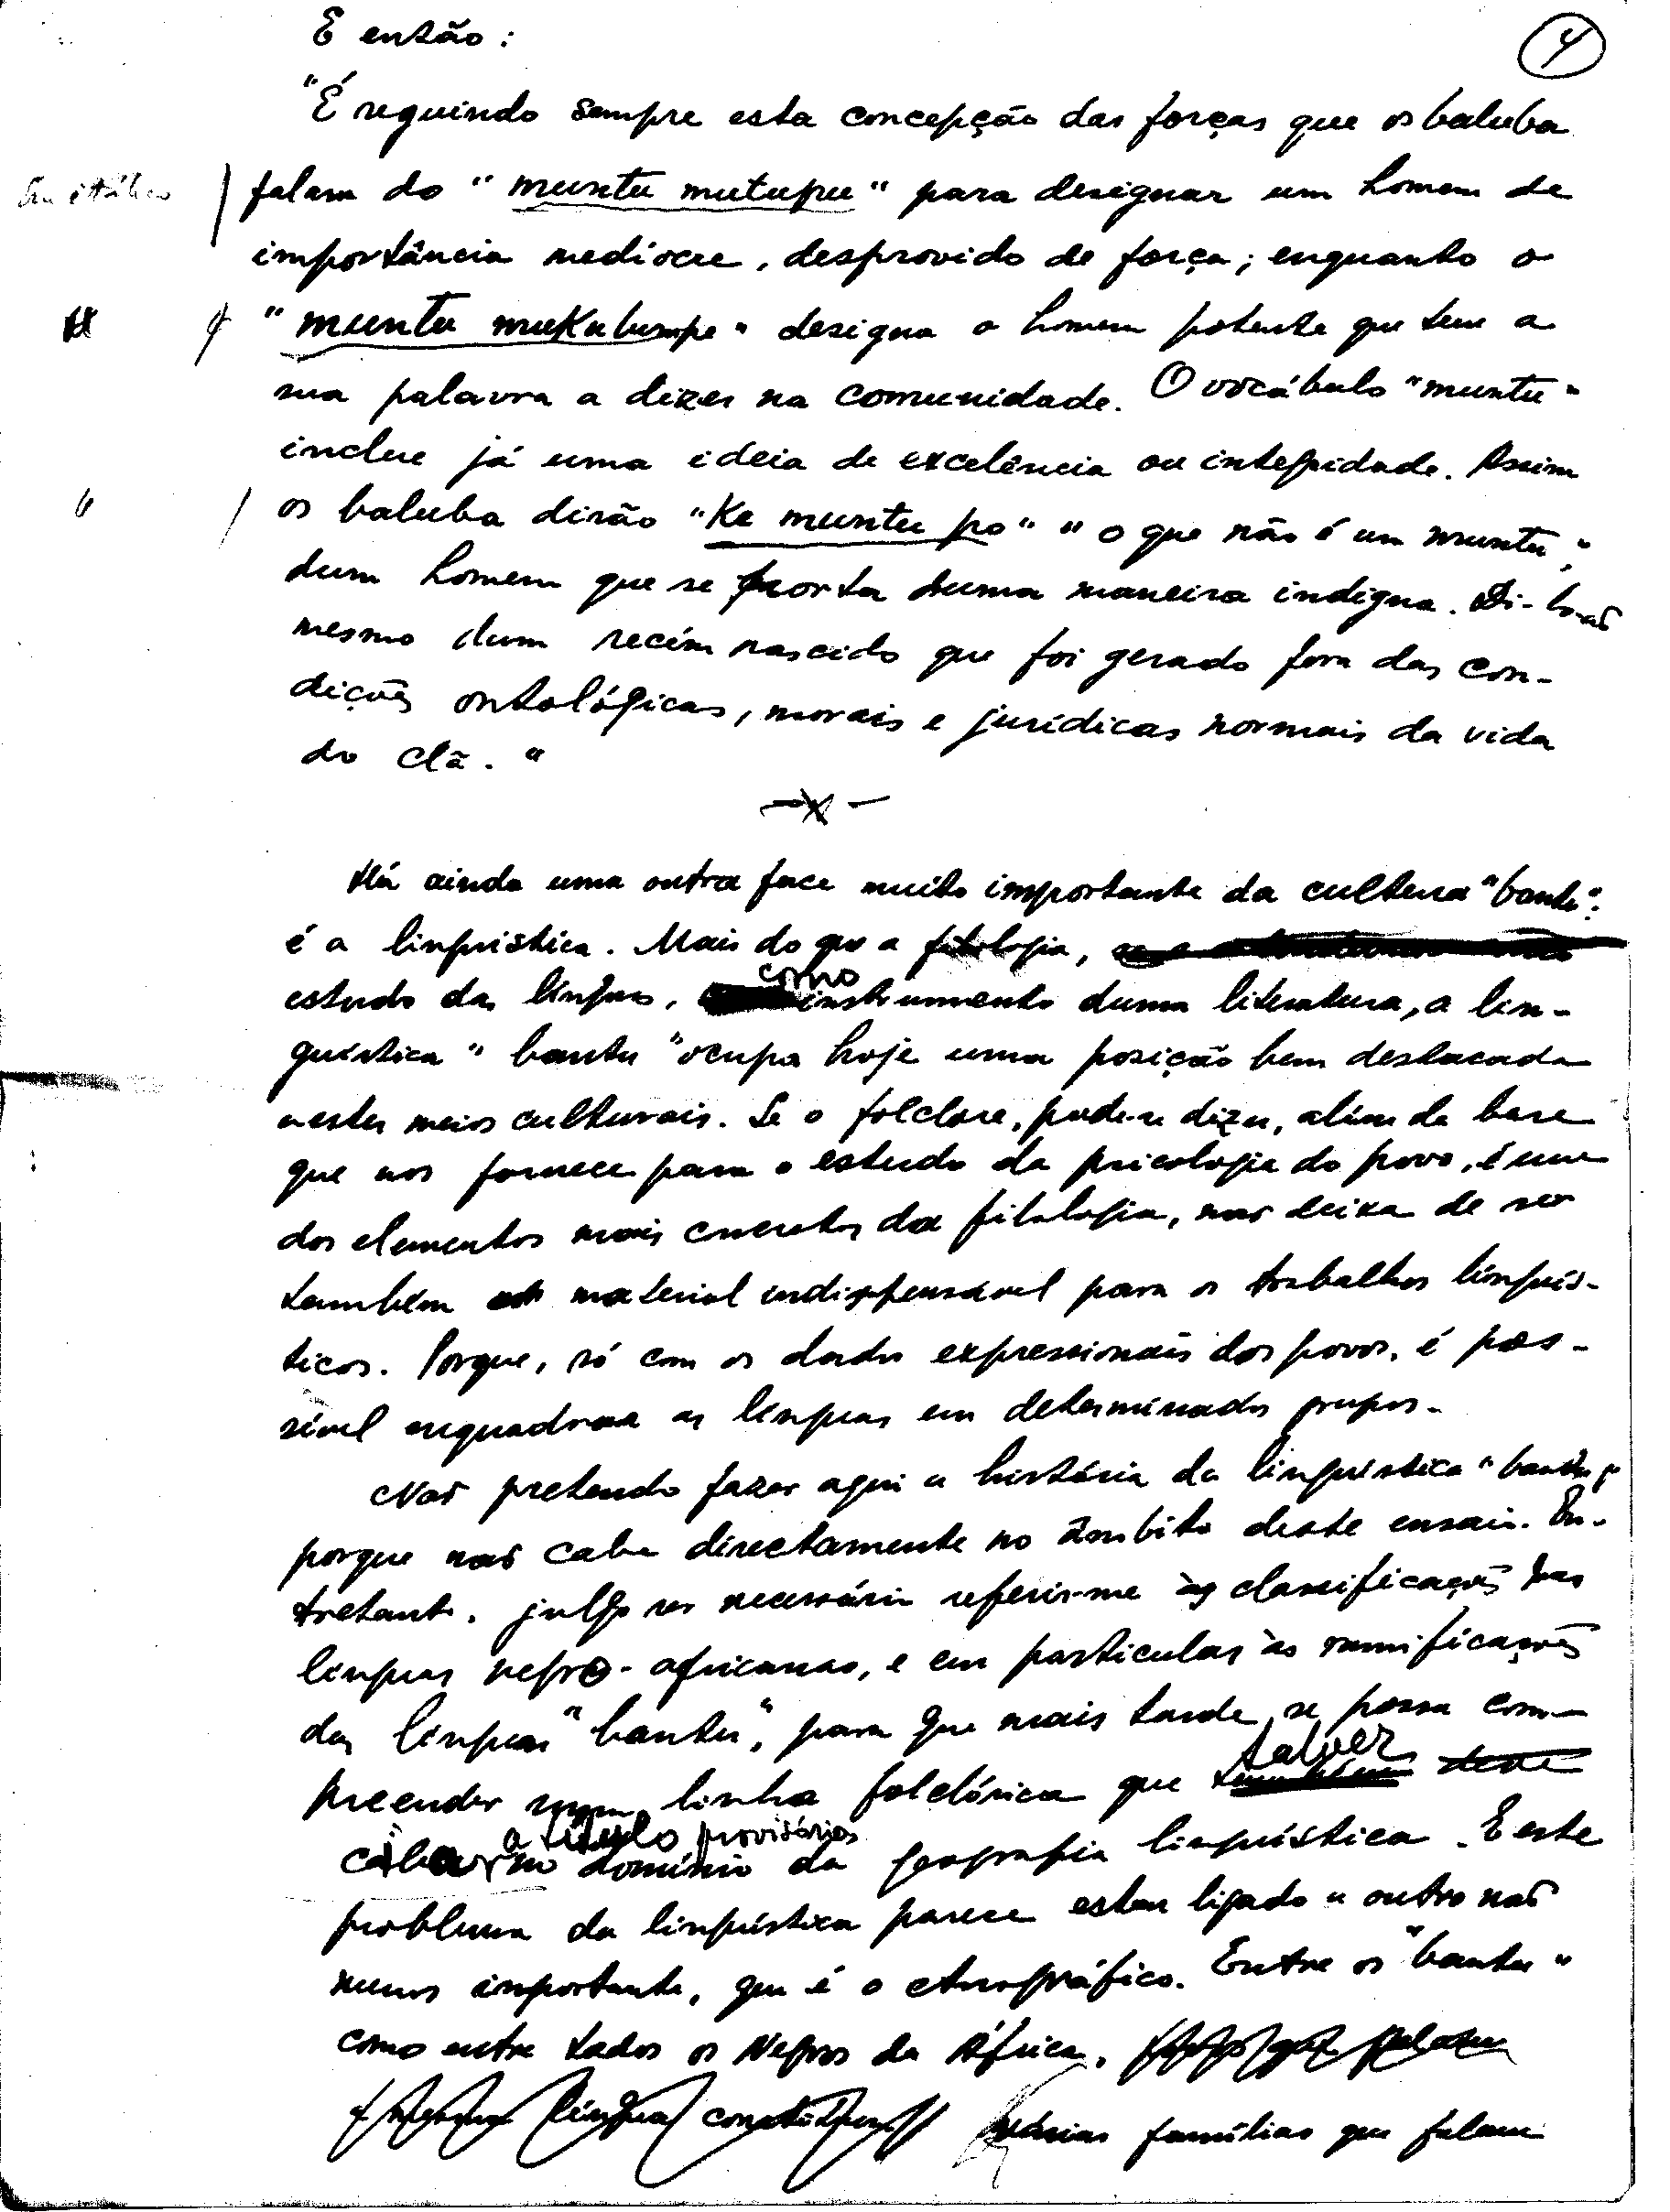 E então:
4
"É seguindo sempre esta concepção das forças que os baluba
Em itálico / falam do "muntu mutupu" para designar um homem de
importância mediocre, desprovido de força; enquanto o
"muntu mukulumpe" designa o homem potente que tem a
sua palavra a dizer na comunidade. O vocábulo "muntu"
inclue já uma ideia de excelência ou integridade. Assim
" / os baluba dirão "Ke muntu po" "o que não é um muntu";
dum homem que se porta duma maneira indigna. Di-lo-ão
mesmo dum recém nascido que foi gerado fora das con-
dições ontológicas, morais e jurídicas normais da vida
do clã."
—x—
Há ainda uma outra face muito importante da cultura "bantu":
é a linguística. Mais do que a filologia,
estudo das línguas, como instrumento duma literatura, a lin-
guística "bantu" ocupa hoje uma posição bem destacada
nestes meios culturais. Se o folclore, pode-se dizer, além da base
que nos fornece para o estudo da psicologia do povo, é um
dos elementos mais concretos da filologia, não deixa de ser
também material indispensável para os trabalhos linguís-
ticos. Porque, só com os dados expressionais dos povos, é pos-
sível enquadrar as línguas em determinados grupos.
Não pretendo fazer aqui a história da linguística "bantu",
porque não cabe directamente no âmbito deste ensaio. En-
tretanto, julgo ser necessário referir-me às classificações das
línguas negro-africanas, e em particular às ramificações
das línguas "bantu", para que mais tarde se possa com-
preender numa linha folclórica que talvez
caiba a título provisório no domínio da geografia linguística. E este
problema da linguística parece estar ligado a outro não
menos importante, que é o etnográfico. Entre os "bantu"
como entre todos os Negros da África,
várias famílias que falam